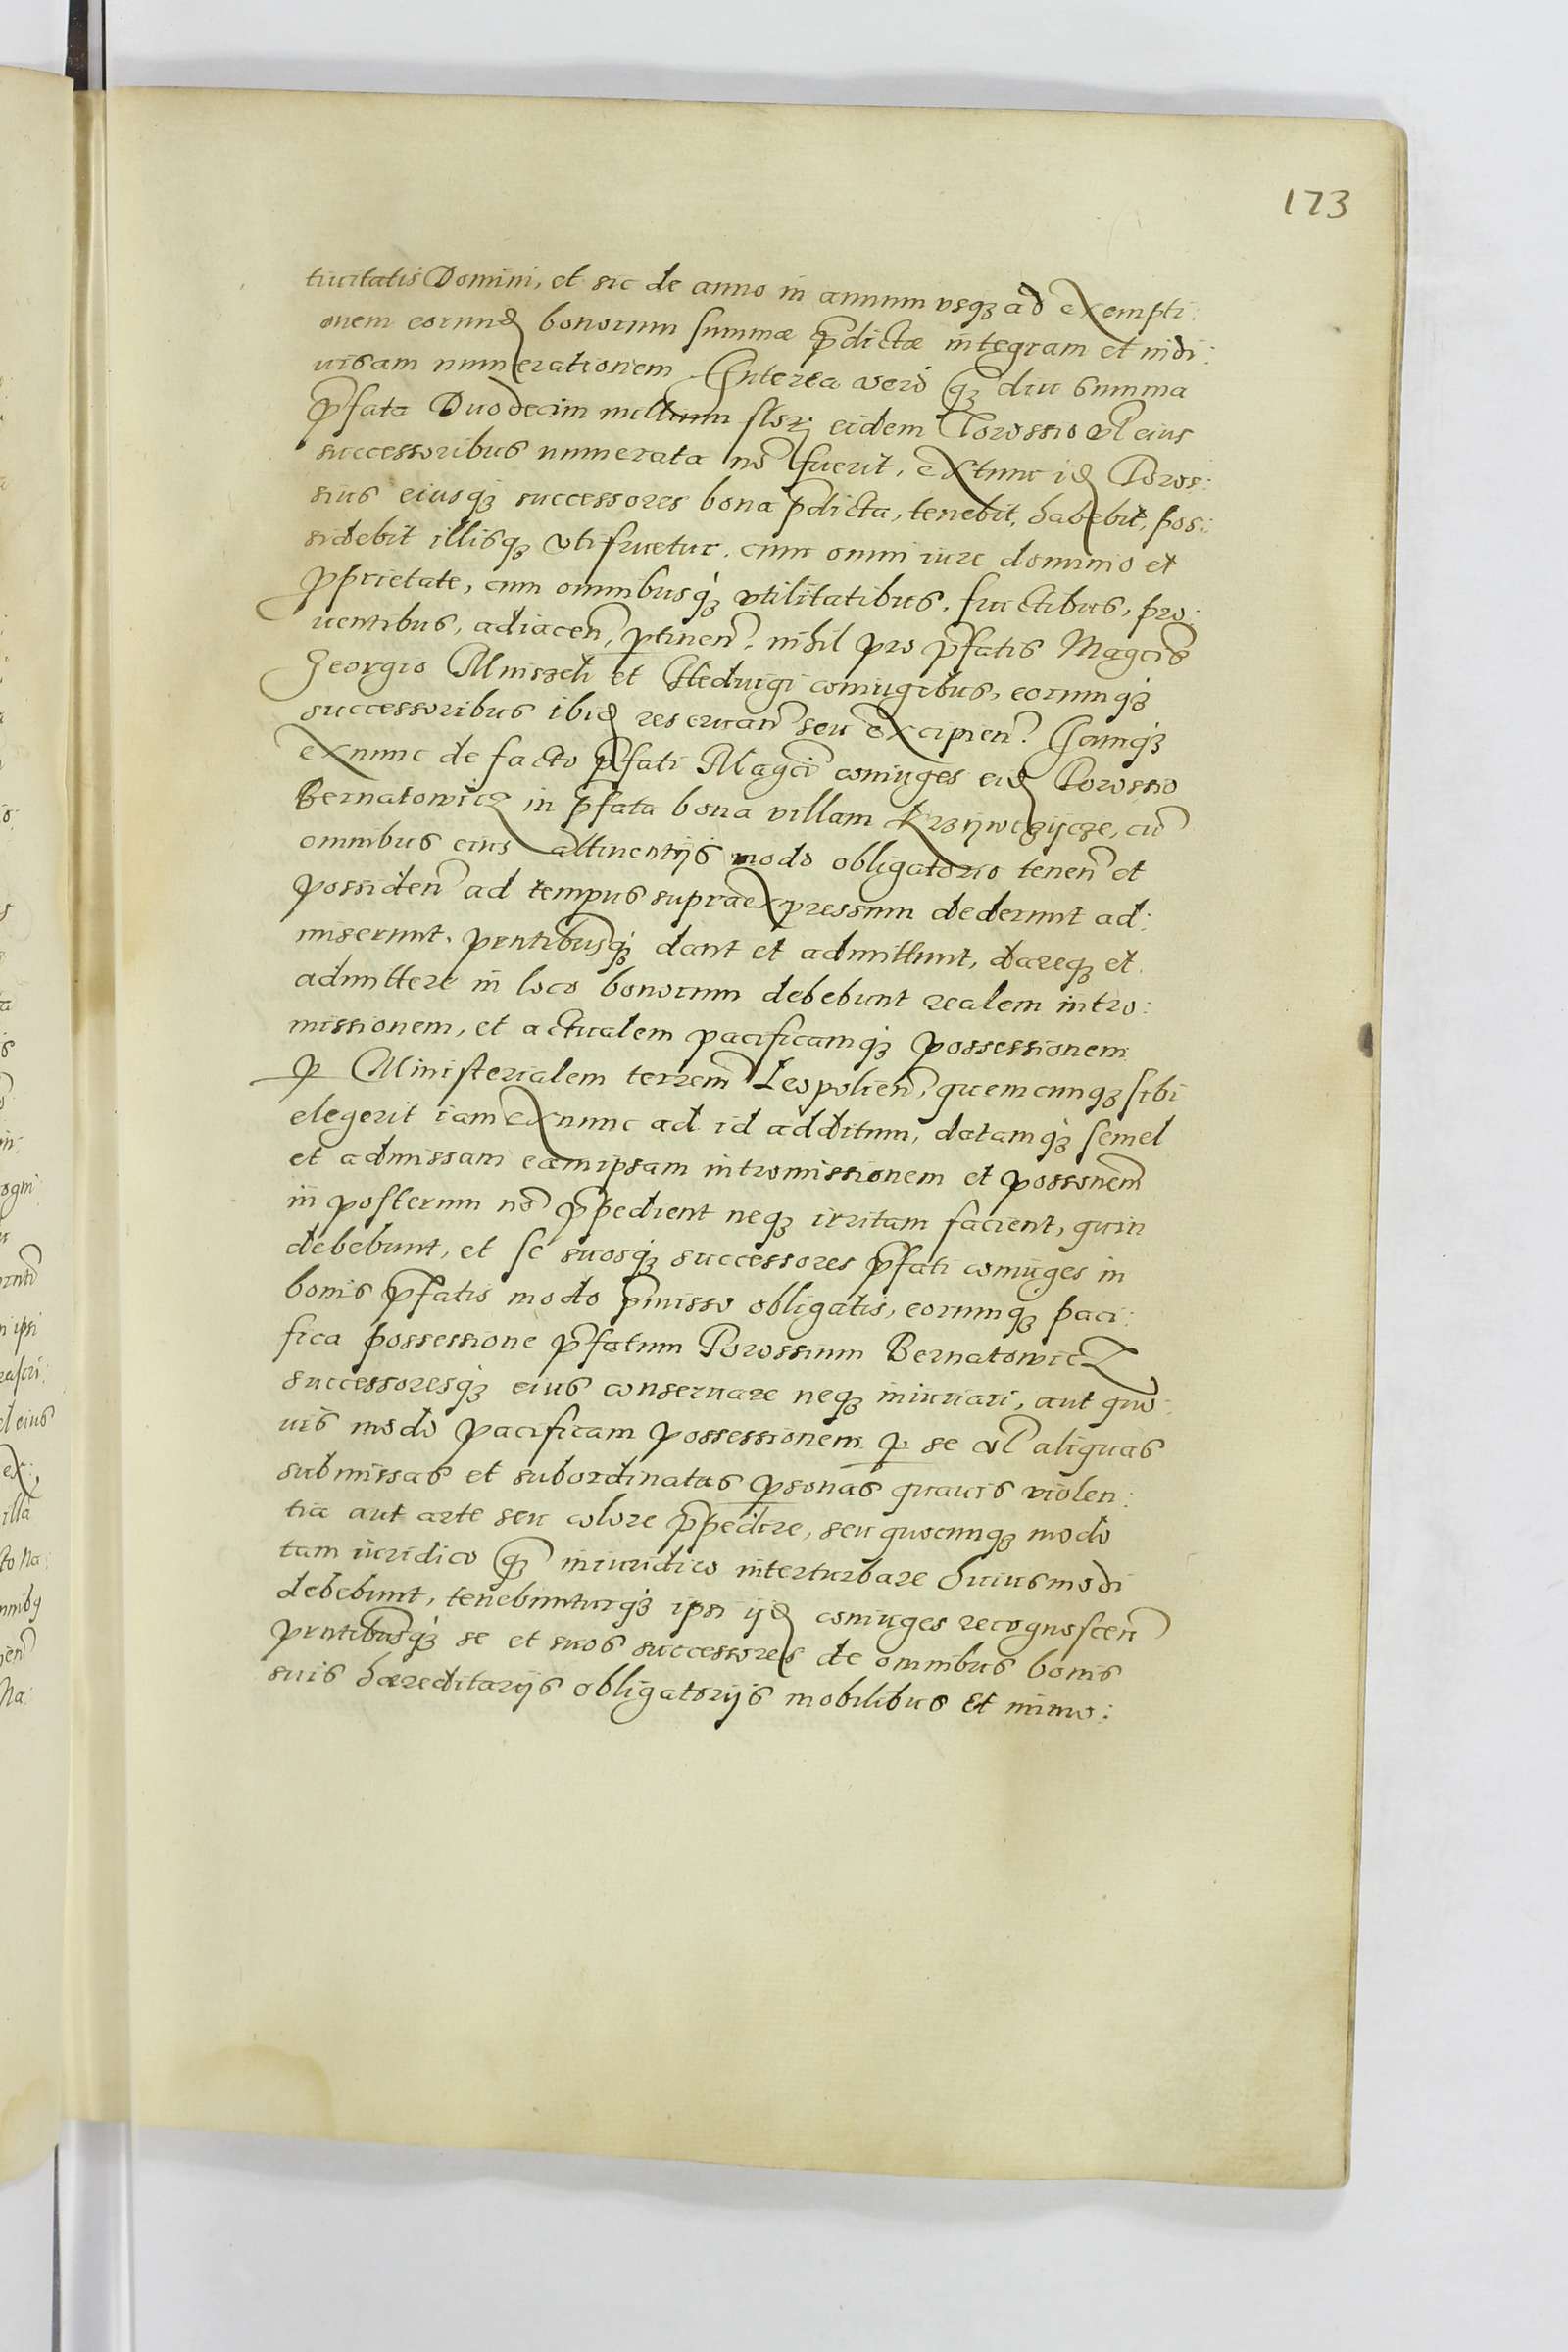 173
tiuitatis Domini, et sic de anno in annum vsq₃ ad exempti:
onem eorund bonorum summæ p̄dictæ integram et indi:
uisam numerationem. Interea vero q̄₃ diu summa
p̄fata Duodecim millium flor: eidem Torossio vl eius
successoribus numerata nō fuerit, extunc id Toros:
sius eiusq₃ successores bona p̄dicta, tenebit, habebit, pos:
sidebit illisq₃ vtifruetur. cum omni iure dominio et
ꝓprietate, cum omnibusq₃ vtilitatibus, fructibus, pro:
uentibus, adiaceñ, ꝑtineñ, nihil pro p̄fatis Magcis
Georgio Mniszch et Heduigi coniugibus, eorumq₃
successoribus ibid reseruañ seu excipieñ. Iamq₃
exnunc de facto p̄fati Magci coniuges eid Torossio
Bernatowicz in p̄fata bona villam Krzywczycze, cū
omnibus eius attinentijs modo obligatorio teneñ et
possideñ ad tempus supraexpressum dederunt ad:
miserunt, pñtibusq₃ dant et admittunt, dareq₃ et
admittere in loco bonorum debebunt realem intro:
missionem, et actualem pacificamq₃ possessionem
ꝑ Ministerialem terrem̄ Leopolieñ, quemcunq₃ sibi
elegerit iam exnunc ad id additum, datamq₃ semel
et admissam eamipsam intromissionem et possonem̄
in posterum nō p̄pedient neq₃ irritam facient, quin
debebunt, et se suosq₃ successores p̄fati coniuges in
bonis p̄fatis modo p̄misso obligatis, eorumq₃ paci:
fica possessione p̄fatum Torossium Bernatowicz
successoresq₃ eius conseruare neq₃ iniuriari, aut quo:
uis modo pacificam possessionem ꝑ se vl aliquas
submissas et subordinatas ꝑsonas quauis violen:
tia aut arte seu colore p̄pedire, seu quocunq₃ modo
tam iuridico q̄₃ iniuridico interturbare huiusmodi
debebunt, tenebunturq₃ ipsi ijd coniuges recognosceñ
pñtibusq₃ se et suos successores de omnibus bonis
suis hæreditarijs obligatorijs mobilibus et immo: